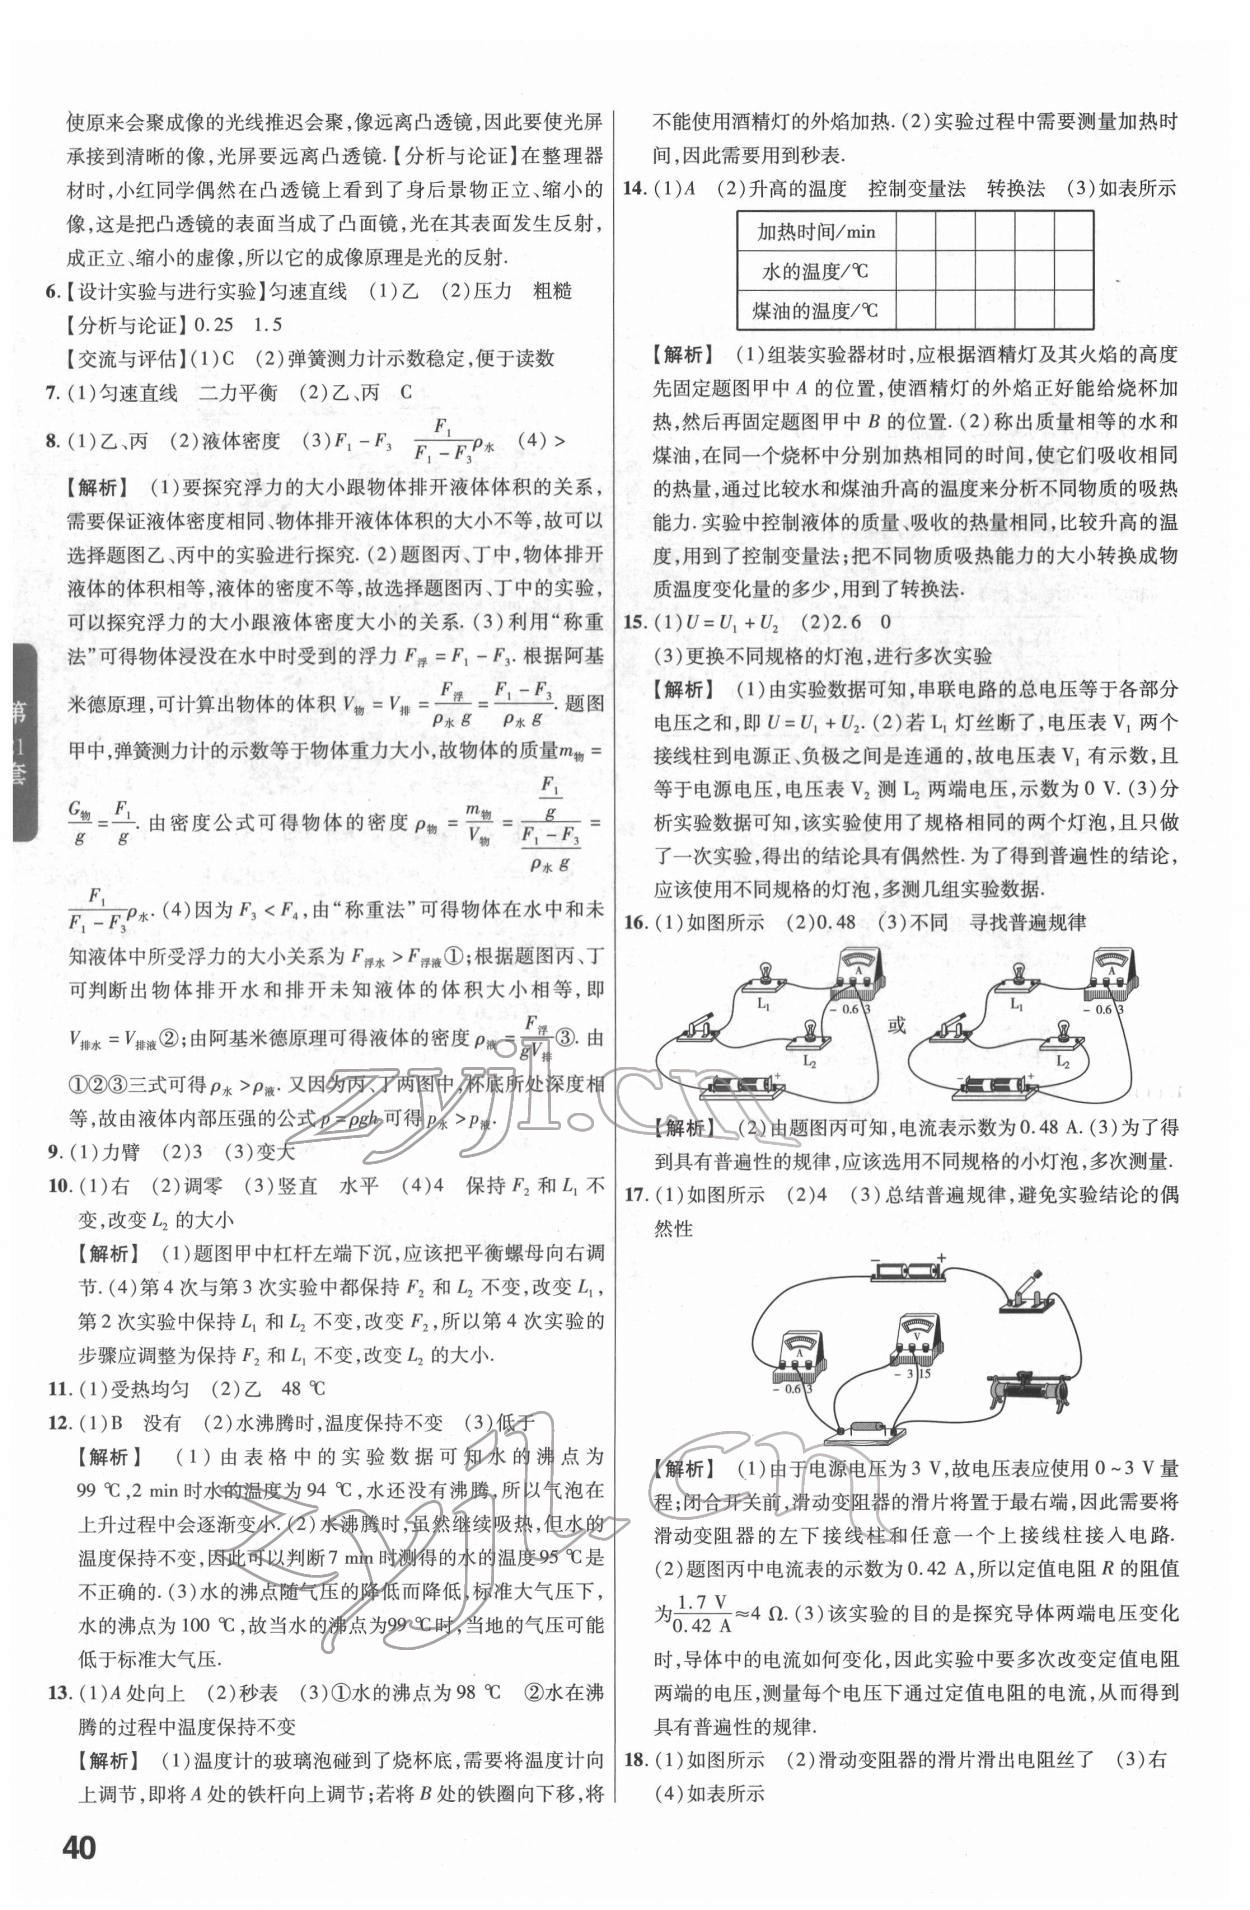 使原来会聚成像的光线推迟会聚,像远离凸透镜,因此要使光屏
承接到清晰的像,光屏要远离凸透镜.【分析与论证】在整理器
材时,小红同学偶然在凸透镜上看到了身后景物正立、缩小的
像,这是把凸透镜的表面当成了凸面镜,光在其表面发生反射,
成正立、缩小的虚像,所以它的成像原理是光的反射.
6.【设计实验与进行实验】匀速直线 (1)乙 (2)压力 粗糙
【分析与论证】0.25 1.5
【交流与评估】(1)C (2)弹簧测力计示数稳定,便于读数
7. (1)匀速直线 二力平衡 (2)乙、丙 C
8. (1)乙、丙 (2)液体密度 (3)F₁-F₃ F₁/(F₁-F₃)ρ水 (4)>
【解析】 (1)要探究浮力的大小跟物体排开液体体积的关系,
需要保证液体密度相同、物体排开液体体积的大小不等,故可以
选择题图乙、丙中的实验进行探究.(2)题图丙、丁中,物体排开
液体的体积相等,液体的密度不等,故选择题图丙、丁中的实验,
可以探究浮力的大小跟液体密度大小的关系.(3)利用“称重
法”可得物体浸没在水中时受到的浮力 F浮=F₁-F₃.根据阿基
米德原理,可计算出物体的体积 V物=V排=F浮/(ρ水g)=(F₁-F₃)/(ρ水g).题图
甲中,弹簧测力计的示数等于物体重力大小,故物体的质量m物=
G物/g=F₁/g.由密度公式可得物体的密度 ρ物=m物/V物=(F₁/g)/((F₁-F₃)/(ρ水g))=
F₁/(F₁-F₃)ρ水.(4)因为 F₃<F₄,由“称重法”可得物体在水中和未
知液体中所受浮力的大小关系为 F浮水>F浮液①;根据题图丙、丁
可判断出物体排开水和排开未知液体的体积大小相等,即
V排水=V排液②;由阿基米德原理可得液体的密度 ρ液=F浮/(gV排)③.由
①②③三式可得 ρ水>ρ液.又因为丙、丁两图中,杯底所处深度相
等,故由液体内部压强的公式 p=ρgh 可得 p水>p液.
9. (1)力臂 (2)3 (3)变大
10. (1)右 (2)调零 (3)竖直 水平 (4)4 保持 F₂ 和 L₁ 不
变,改变 L₂ 的大小
【解析】 (1)题图甲中杠杆左端下沉,应该把平衡螺母向右调
节.(4)第 4 次与第 3 次实验中都保持 F₂ 和 L₂ 不变,改变 L₁,
第 2 次实验中保持 L₁ 和 L₂ 不变,改变 F₂,所以第 4 次实验的
步骤应调整为保持 F₂ 和 L₁ 不变,改变 L₂ 的大小.
11. (1)受热均匀 (2)乙 48 ℃
12. (1)B 没有 (2)水沸腾时,温度保持不变 (3)低于
【解析】 (1)由表格中的实验数据可知水的沸点为
99 ℃,2 min时水的温度为 94 ℃,水还没有沸腾,所以气泡在
上升过程中会逐渐变小.(2)水沸腾时,虽然继续吸热,但水的
温度保持不变,因此可以判断7 min时测得的水的温度95 ℃是
不正确的.(3)水的沸点随气压的降低而降低,标准大气压下,
水的沸点为 100 ℃,故当水的沸点为99 ℃时,当地的气压可能
低于标准大气压.
13. (1)A处向上 (2)秒表 (3)①水的沸点为 98 ℃ ②水在沸
腾的过程中温度保持不变
【解析】 (1)温度计的玻璃泡碰到了烧杯底,需要将温度计向
上调节,即将 A 处的铁杆向上调节;若将 B 处的铁圈向下移,将
40
第
31
套
不能使用酒精灯的外焰加热.(2)实验过程中需要测量加热时
间,因此需要用到秒表.
14. (1)A (2)升高的温度 控制变量法 转换法 (3)如表所示
加热时间/min
水的温度/℃
煤油的温度/℃
【解析】 (1)组装实验器材时,应根据酒精灯及其火焰的高度
先固定题图甲中 A 的位置,使酒精灯的外焰正好能给烧杯加
热,然后再固定题图甲中 B 的位置.(2)称出质量相等的水和
煤油,在同一个烧杯中分别加热相同的时间,使它们吸收相同
的热量,通过比较水和煤油升高的温度来分析不同物质的吸热
能力.实验中控制液体的质量、吸收的热量相同,比较升高的温
度,用到了控制变量法;把不同物质吸热能力的大小转换成物
质温度变化量的多少,用到了转换法.
15. (1)U=U₁+U₂ (2)2.6 0
(3)更换不同规格的灯泡,进行多次实验
【解析】 (1)由实验数据可知,串联电路的总电压等于各部分
电压之和,即 U=U₁+U₂.(2)若 L₁ 灯丝断了,电压表 V₁ 两个
接线柱到电源正、负极之间是连通的,故电压表 V₁ 有示数,且
等于电源电压,电压表 V₂ 测 L₂ 两端电压,示数为 0 V.(3)分
析实验数据可知,该实验使用了规格相同的两个灯泡,且只做
了一次实验,得出的结论具有偶然性.为了得到普遍性的结论,
应该使用不同规格的灯泡,多测几组实验数据.
16. (1)如图所示 (2)0.48 (3)不同 寻找普遍规律
L₁ A - 0.6 3 L₂ - +
或
L₁ A - 0.6 3 L₂ - +
【解析】 (2)由题图丙可知,电流表示数为 0.48 A.(3)为了得
到具有普遍性的规律,应该选用不同规格的小灯泡,多次测量.
17. (1)如图所示 (2)4 (3)总结普遍规律,避免实验结论的偶
然性
- +
A - 0.6 3
V - 3 15
【解析】 (1)由于电源电压为 3 V,故电压表应使用 0~3 V 量
程;闭合开关前,滑动变阻器的滑片将置于最右端,因此需要将
滑动变阻器的左下接线柱和任意一个上接线柱接入电路.
(2)题图丙中电流表的示数为 0.42 A,所以定值电阻 R 的阻值
为1.7 V/0.42 A≈4 Ω.(3)该实验的目的是探究导体两端电压变化
时,导体中的电流如何变化,因此实验中要多次改变定值电阻
两端的电压,测量每次电压下通过定值电阻的电流,从而得到
具有普遍性的规律.
18. (1)如图所示 (2)滑动变阻器的滑片滑出电阻丝了 (3)右
(4)如表所示
zyjl.cn
zyjl.cn